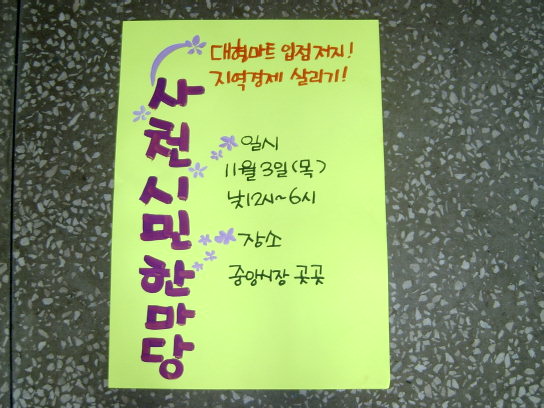 대형마트 입점저지!
지역경제 살리기!
사천시민한마당
일시
11월 3일(목)
낮12시~6시
장소
중앙시장 곳곳